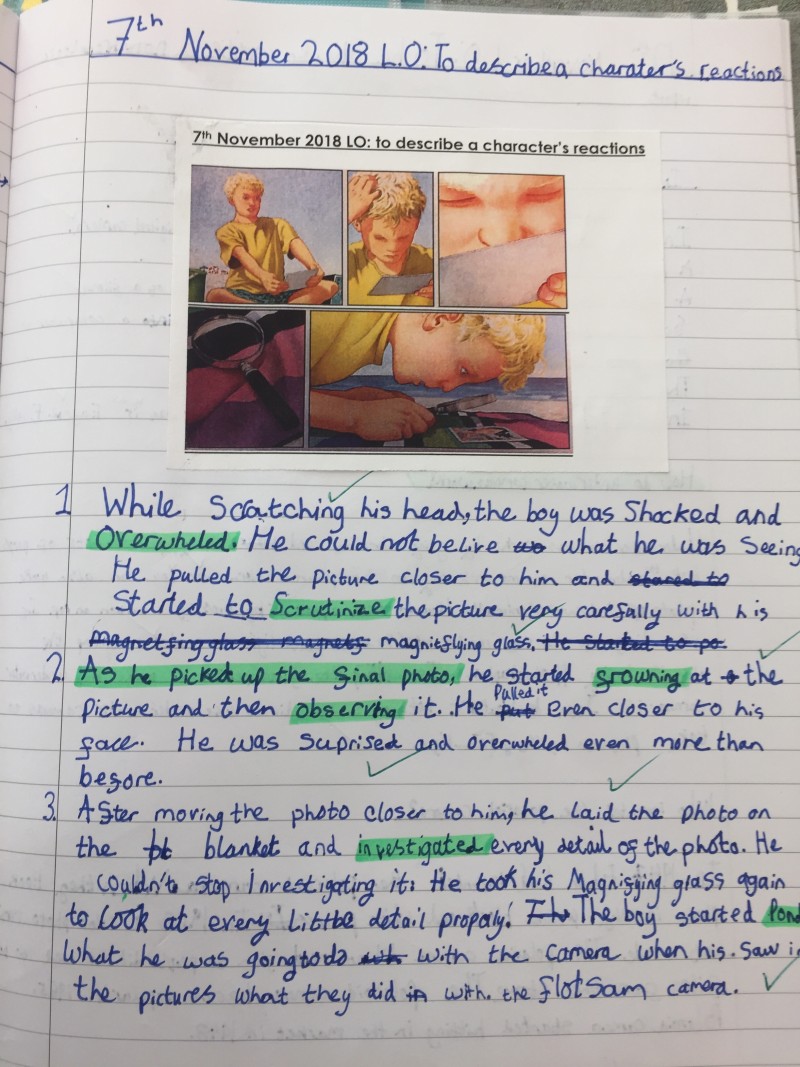 7th November 2018 L.O: To describe a charater's reactions
7th November 2018 LO: to describe a character's reactions
1 While Scratching his head, the boy was Shocked and
Overwheled. He could not belire wo what he was Seeing
He pulled the picture closer to him and stared to
Started to Scrutinize the picture very carefully with his
magnetfing glass magnets magnitflying glass. He started to po
2. As he picked up the final photo, he started frowning at the
picture and then observing it. He put Pulled it Even closer to his
face. He was Suprised and overwheled even more than
before.
3. After moving the photo closer to him, he laid the photo on
the bl blanket and investigated every detail of the photo. He
couldn't stop investigating it. He took his Magnifying glass again
to Look at every little detail propaly. The boy started Pond
What he was going to do with the camera when his saw i
the pictures what they did in with. the flotsam camera.